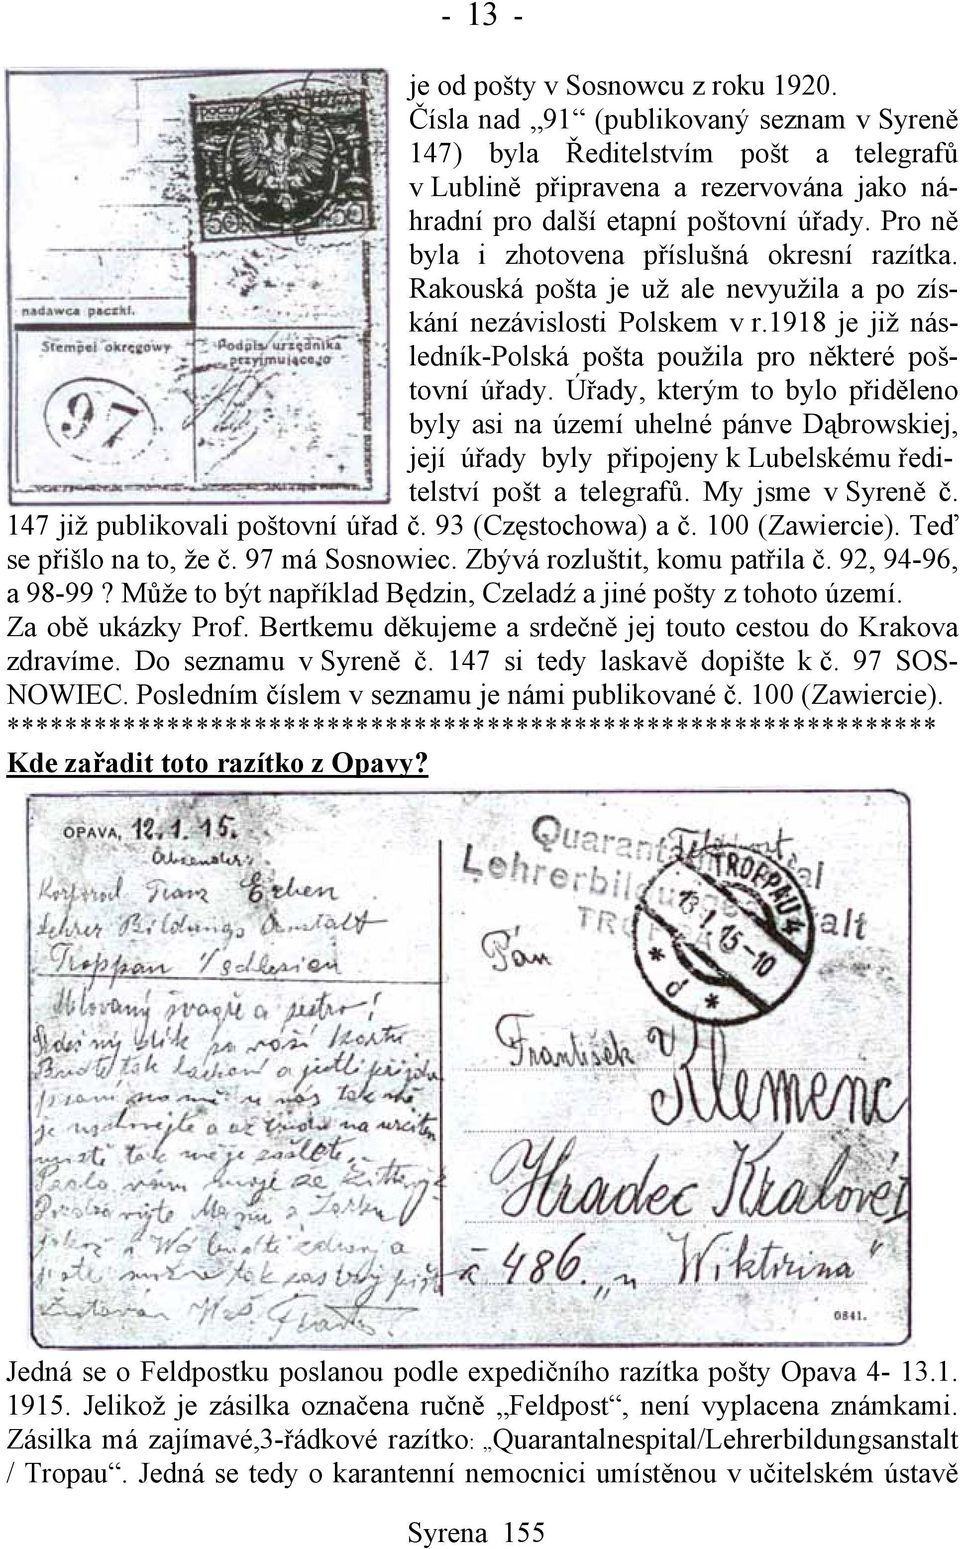 - 13 -
je od pošty v Sosnowcu z roku 1920.
Čísla nad „91“ (publikovaný seznam v Syreně
147) byla Ředitelstvím pošt a telegrafů
v Lublině připravena a rezervována jako ná-
hradní pro další etapní poštovní úřady. Pro ně
byla i zhotovena příslušná okresní razítka.
Rakouská pošta je už ale nevyužila a po zís-
kání nezávislosti Polskem v r.1918 je již nás-
ledník-Polská pošta použila pro některé poš-
tovní úřady. Úřady, kterým to bylo přiděleno
byly asi na území uhelné pánve Dąbrowskiej,
její úřady byly připojeny k Lubelskému ředi-
telství pošt a telegrafů. My jsme v Syreně č.
nadawca paczki.
Stempel okręgowy
Podpis urzędnika
przyjmującego
97
50 50
147 již publikovali poštovní úřad č. 93 (Częstochowa) a č. 100 (Zawiercie). Teď
se přišlo na to, že č. 97 má Sosnowiec. Zbývá rozluštit, komu patřila č. 92, 94-96,
a 98-99? Může to být například Będzin, Czeladź a jiné pošty z tohoto území.
Za obě ukázky Prof. Bertkemu děkujeme a srdečně jej touto cestou do Krakova
zdravíme. Do seznamu v Syreně č. 147 si tedy laskavě dopište k č. 97 SOS-
NOWIEC. Posledním číslem v seznamu je námi publikované č. 100 (Zawiercie).
******************************************************************
Kde zařadit toto razítko z Opavy?
OPAVA, 12.1.15.
Absender:
Korporal Franz Erben
Lehrer Bildungs Anstalt
Troppau / Schlesien
Milovaný švagře a sestro!
Srdečný dík za vaší kartu
Buďte tak
Feldpost
Quarantalnespital
Lehrerbildungsanstalt
TROPPAU
TROPPAU 4
13.1.15-10
* d *
Pán
František
Klemenc
Hradec Králové I
486. „u Wiktirina“
0841.
Jedná se o Feldpostku poslanou podle expedičního razítka pošty Opava 4- 13.1.
1915. Jelikož je zásilka označena ručně „Feldpost“, není vyplacena známkami.
Zásilka má zajímavé,3-řádkové razítko: „Quarantalnespital/Lehrerbildungsanstalt
/ Tropau“. Jedná se tedy o karantenní nemocnici umístěnou v učitelském ústavě
Syrena 155